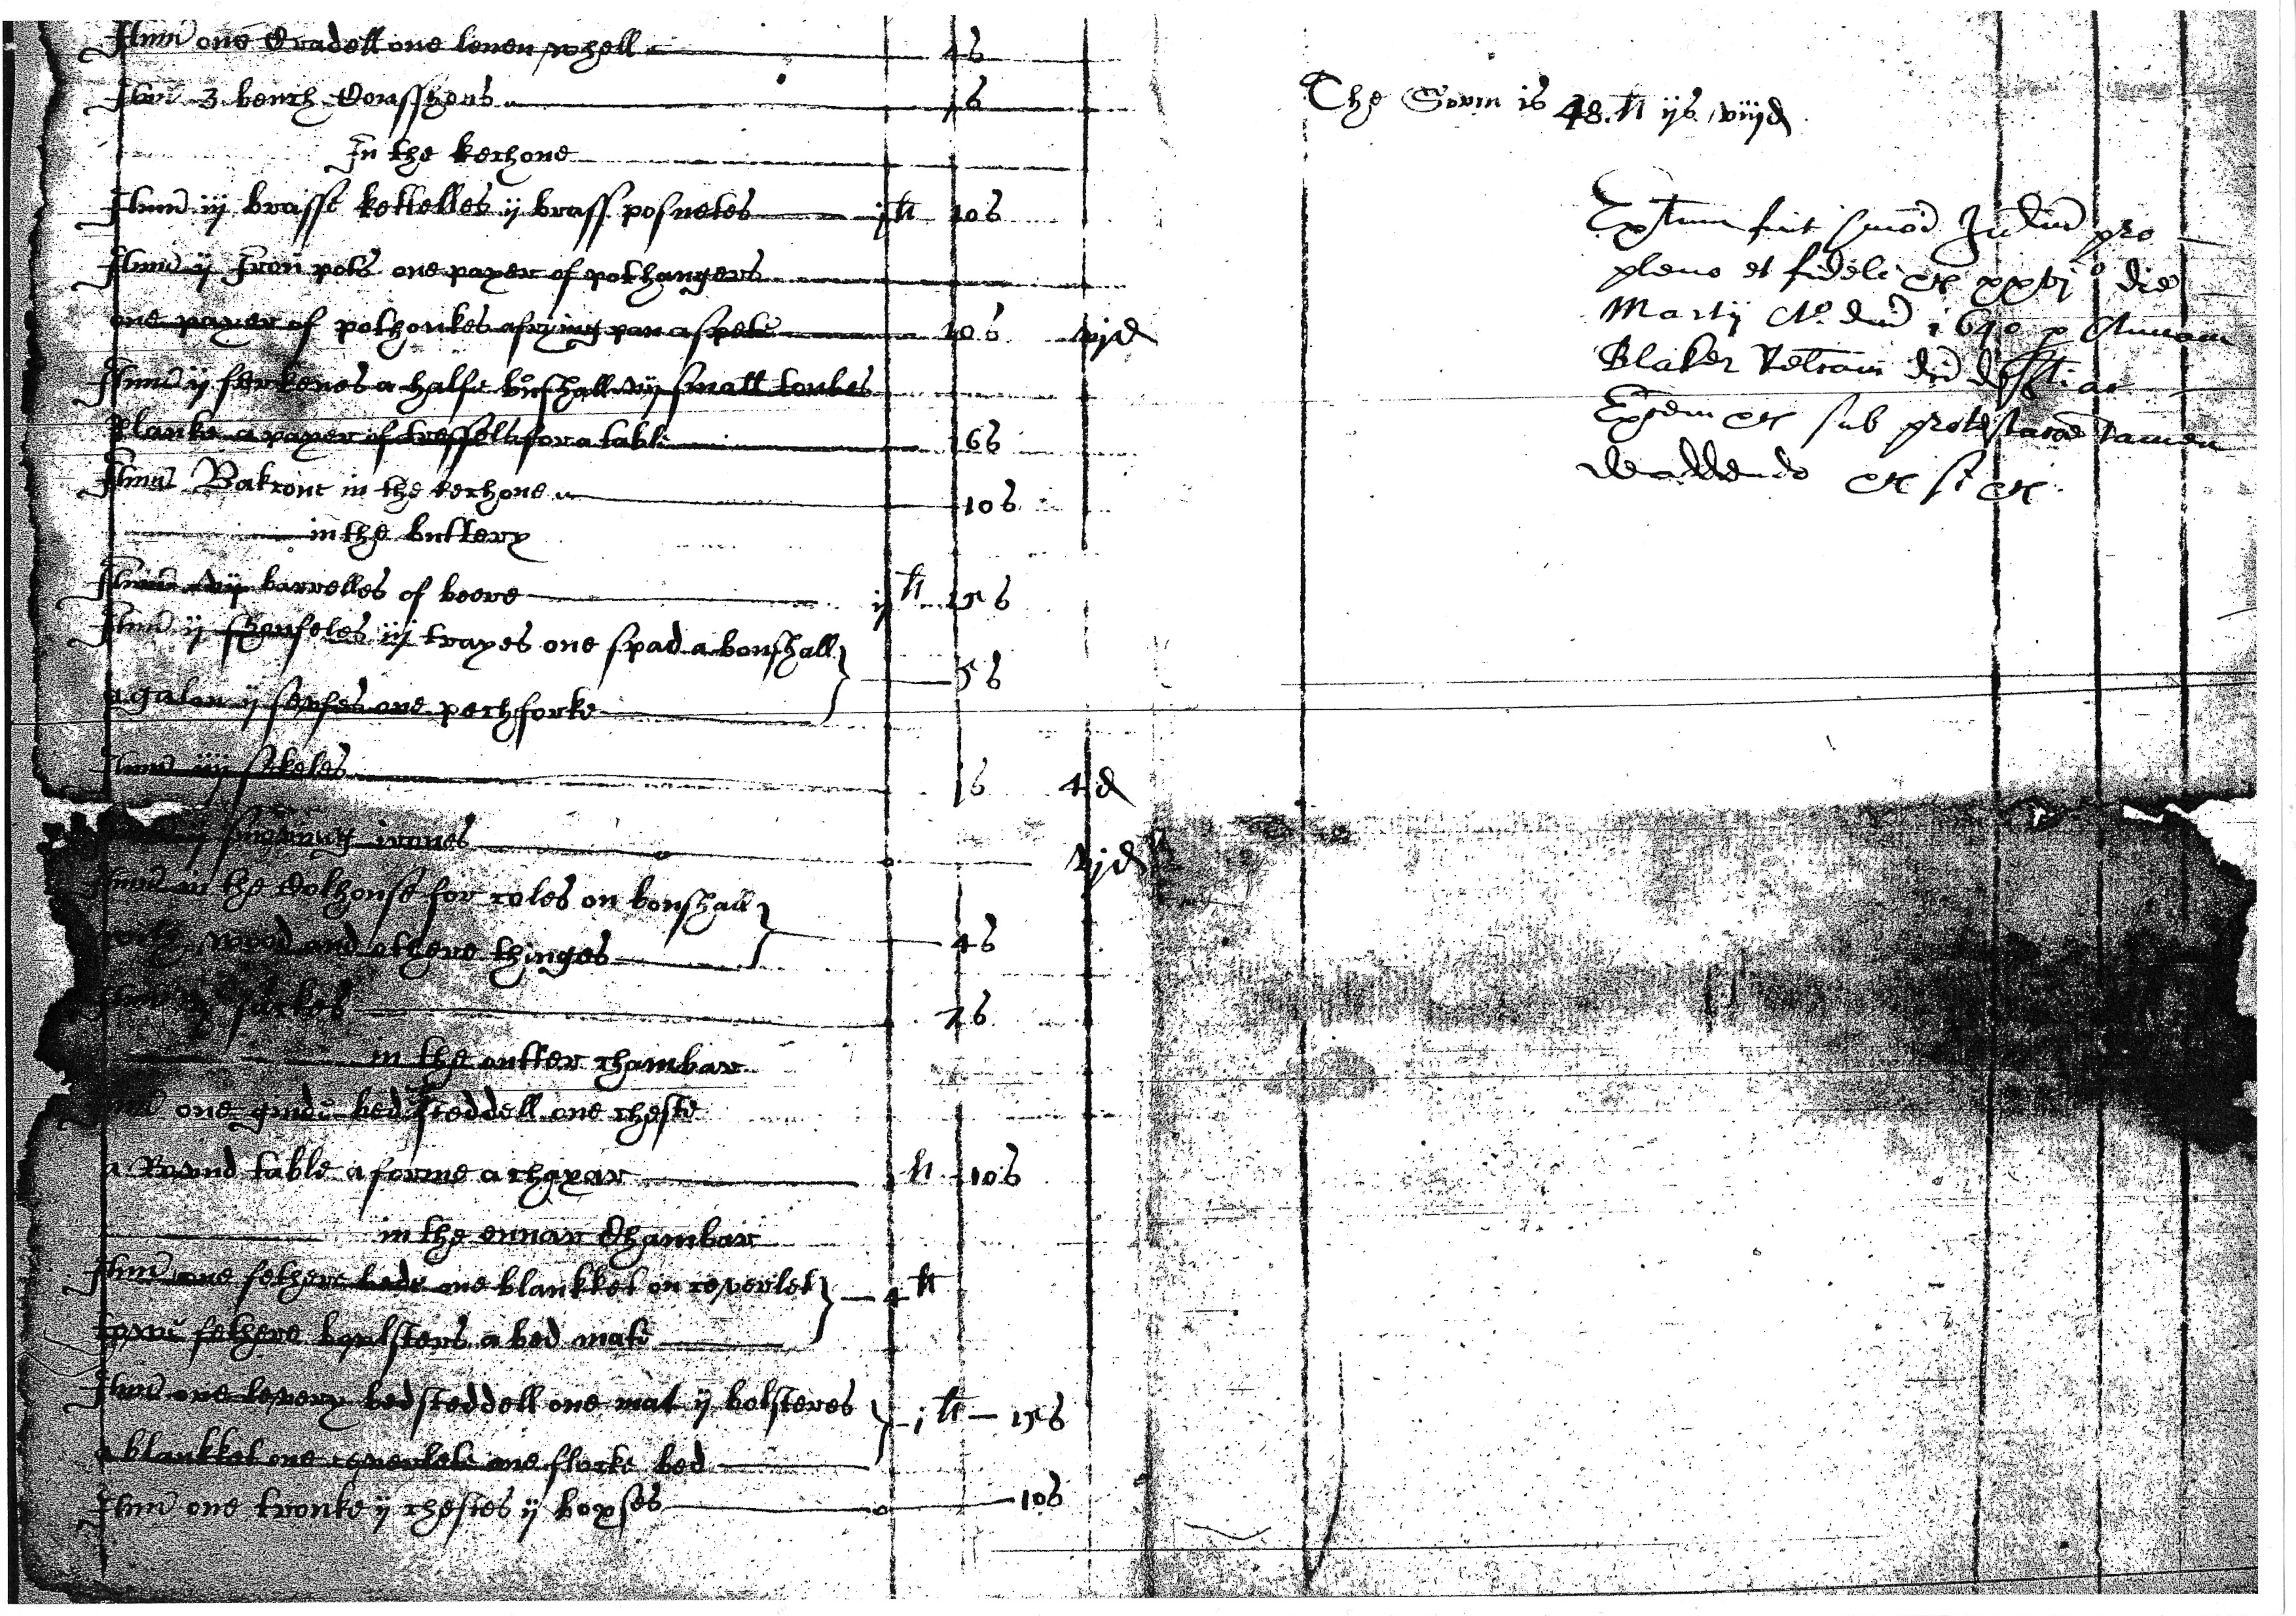 Itm one Cradell one lenen whell 4s
Itm 3 bench Cousshens 1s
In the kechone
Itm iij brasse kettelles ij brass posnetes j li 10s
Itm ij Iron pots one payer of pothangers
one payer of pothoukes a frying pan a spete 10s vjd
Itm ij ferkenes a halfe bushall vij small toubes
Planke a payer of tressells for a table 16s
Itm Bakrone in the kechone 10s
in the buttery
Itm vij barrelles of beere ij li 15s
Itm ij shoufeles iij trayes one spad a boushall
a galon ij seyfes one pechforke 5s
Itm iiij sekeles 1s 4d
ij irones vjd
Itm in the Colhouse for coles on boushall
with wood and othere thinges 4s
Itm sackes 2s
in the outter chambar
Itm one bedsteddell one cheste
a Round table a forme a chayar li 10s
in the ennar Chambar
Itm one fethere bede one blankket on coverlet
towe fethere boulsters a bed mate 4 li
Itm one levery bedsteddell one mat ij bolsteres
a blankket one coverlete one flocke bed j li 15s
Itm one tronke ij chestes ij boxses 10s
The Sovm is 48 li ijs viijd
fuit Inđium pro
pleno et fideli &c xxvj o die
Martij Ao dni 1640 p
Blaker
&c sub tamen
de addendo &c si &c